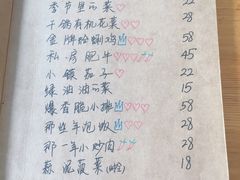 季节里の菜 22
干锅有机花菜♡♡ 28
金牌给蜊鸡♡♡♡ 58
私房肥牛♡♡ 45
小馒茄子♡ 22
绿油油の菜 15
爆香脆小排♡♡ 58
那些年泡饭♡ 28
那一年小炒肉♡♡ 28
蒜泥菠菜 18